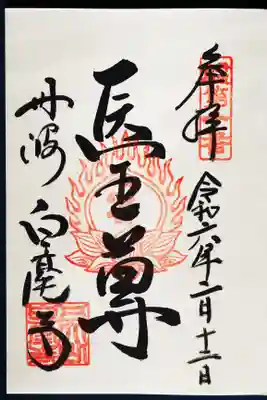 奉拝
令和六年二月十二日
医王尊
丹波 白毫寺